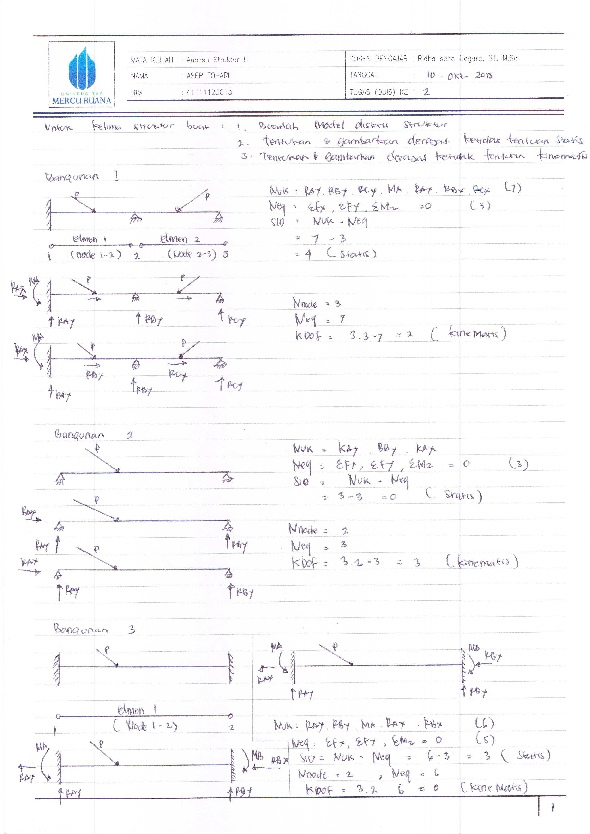 MATA KULIAH : Analisis Struktur I
DOSEN PENGAJAR :
NAMA : ASEP TOHARI
TANGGAL : 10 - Okt - 2013
NIM :
TUGAS (QUIS) KE : 2
UNIVERSITAS
MERCU BUANA
Untuk kelima struktur buat : 1. Model diskrit struktur
2. Tentukan & gambarkan derajat statis
3. Tentukan & gambarkan derajat kinematis
Bangunan 1
P P
NUK = RAY, RBY, RCY, MA, RAX, RBX, RCX (7)
Neq = ΣFx, ΣFy, ΣMz = 0 (3)
SID = NUK - Neq
= 7 - 3
= 4 (Statis)
Elmen 1 Elmen 2
1 (Node 1-2) 2 (Node 2-3) 3
MA P P
RAX
RAY RBY RCY
Nnode = 3
Neq = 7
KDOF = 3.3-7 = 2 (kinematis)
MA P P
RAX RBX RCX
RAY RBY RCY
Bangunan 2
P
NUK = RAY, RBY, RAX
Neq = ΣFx, ΣFy, ΣMz = 0 (3)
SID = NUK - Neq
= 3-3 = 0 (Statis)
P
RAX
RAY RBY
Nnode = 2
Neq = 3
KDOF = 3.2-3 = 3 (kinematis)
P
RAX
RAY RBY
Bangunan 3
P
MA P MB
RAX RBX
RAY RBY
Elmen 1
1 (Node 1-2) 2
NUK = RAY RBY MA RAX RBX (6)
Neq = ΣFx, ΣFy, ΣMz = 0 (3)
SID = NUK - Neq = 6-3 = 3 (Statis)
Nnode = 2 , Neq = 6
KDOF = 3.2 6 = 0 (Kinematis)
MA P MB
RAX RBX
RAY RBY
1